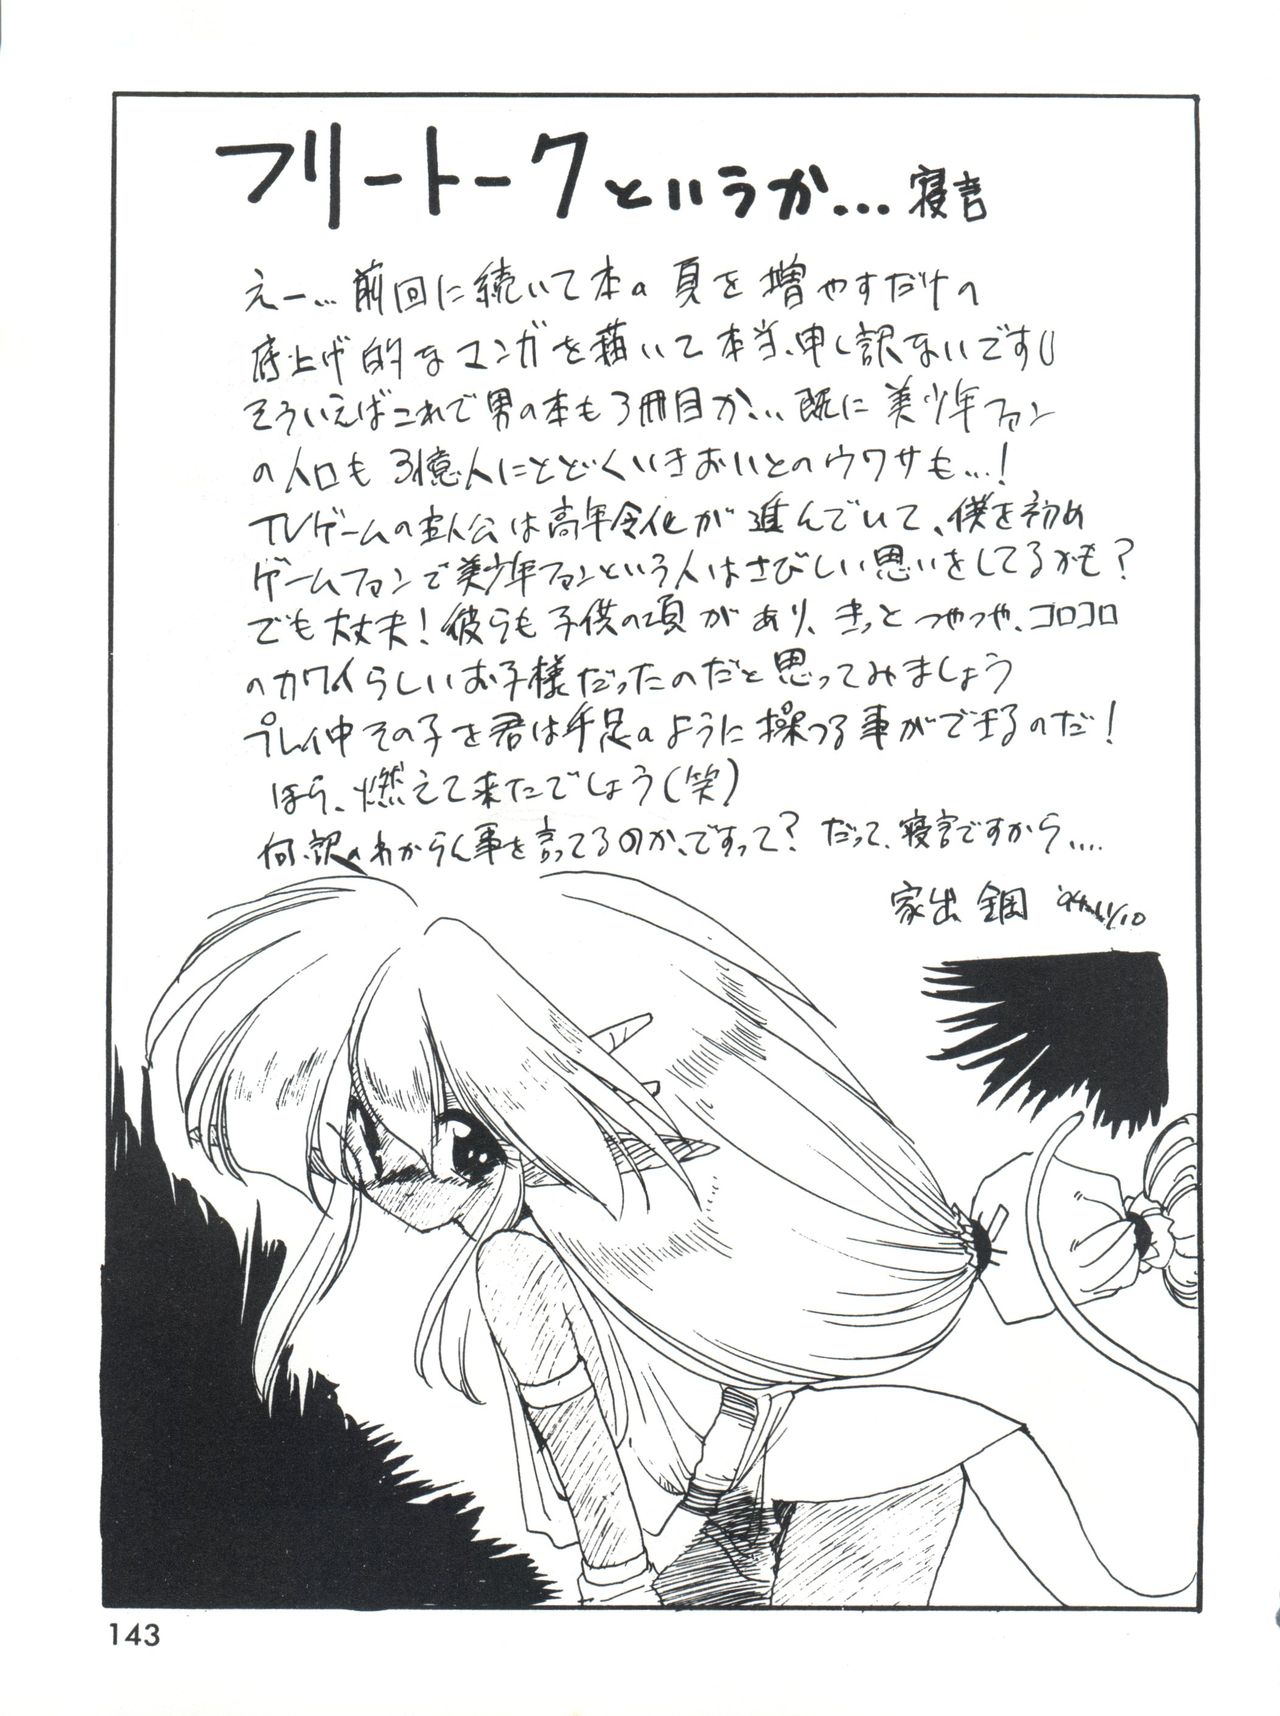 フリートークというか… 寝言
えー… 前回に続いて本の頁を増やすだけの
底上げ的なマンガを描いて本当、申し訳ないです
そういえばこれで男の本も3冊目か… 既に美少年ファン
の人口も3億人にとどくいきおいとのウワサも…!
TVゲームの主人公は高年令化が進んでいて、僕を初め
ゲームファンで美少年ファンという人はさびしい思いをしてるかも?
でも大丈夫!彼らも子供の頃があり、きっとつやつや、コロコロ
のカワイらしいお子様だったのだと思ってみましょう
プレイ中その子を君は手足のように操つる事ができるのだ!
ほら、燃えて来たでしょう(笑)
何、訳のわからん事を言ってるのか、ですって? だって、寝言ですから....
家出 鋼 '94.11/10
143